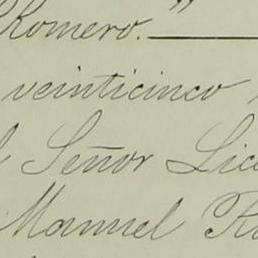 Romero."
veinticinco
Señor Lic
Manuel R